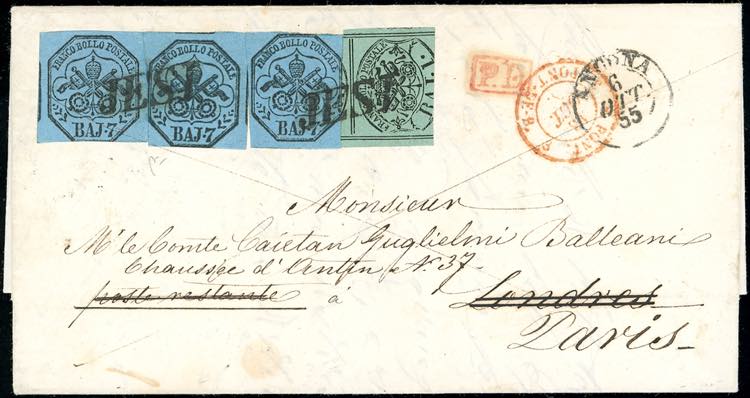 FRANCO BOLLO POSTALE
BAJ-7
FRANCO BOLLO POSTALE
BAJ-7
FRANCO BOLLO POSTALE
BAJ-7
1. BAJ.
JESI
JESI
P.D.
ANCONA
6
OTT
55
Monsieur
M.r le Comte Caietan Guglielmi Balleani
Chaussée d'Antin N.o 37-
poste restante à Londres
Paris-